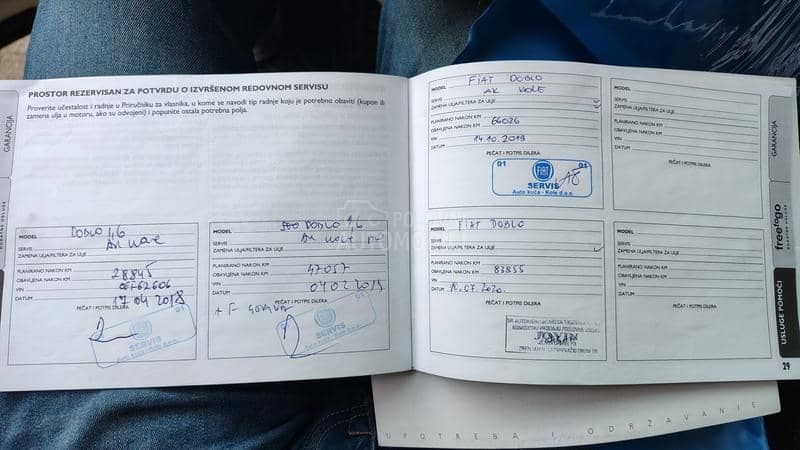 PROSTOR REZERVISAN ZA POTVRDU O IZVRŠENOM REDOVNOM SERVISU
Proverite učestalost i radnje u Priručniku za vlasnika, u kome se navodi tip radnje koju je potrebno obaviti (kupon ili
zamena ulja u motoru, ako su odvojeni) i popunite ostala potrebna polja.
MODEL DOBLO 1,6
SERVIS AK KOLE
ZAMENA ULJA/FILTERA ZA ULJE
PLANIRANO NAKON KM
OBAVLJENA NAKON KM 28845
VIN
DATUM 17 04 2018
PEČAT I POTPIS DILERA
01
SERVIS
Auto kuća - Kole d.o.o.
MODEL DOBLO 1,6
SERVIS AK KOLE
ZAMENA ULJA/FILTERA ZA ULJE
PLANIRANO NAKON KM
OBAVLJENA NAKON KM 47057
VIN
DATUM 04 02 2019
PEČAT I POTPIS DILERA
+ F
01
SERVIS
MODEL FIAT DOBLO
SERVIS AK KOLE
ZAMENA ULJA/FILTERA ZA ULJE
PLANIRANO NAKON KM
OBAVLJENA NAKON KM 66026
VIN 14.10.2019
DATUM
PEČAT I POTPIS DILERA
01 FIAT 01
SERVIS
Auto kuća - Kole d.o.o.
MODEL FIAT DOBLO
SERVIS
ZAMENA ULJA/FILTERA ZA ULJE
PLANIRANO NAKON KM
OBAVLJENA NAKON KM 83855
VIN
DATUM 10.07.2020.
PEČAT I POTPIS DILERA
MODEL
SERVIS
ZAMENA ULJA/FILTERA ZA ULJE
PLANIRANO NAKON KM
OBAVLJENA NAKON KM
VIN
DATUM
PEČAT I POTPIS DILERA
MODEL
SERVIS
ZAMENA ULJA/FILTERA ZA ULJE
PLANIRANO NAKON KM
OBAVLJENA NAKON KM
VIN
DATUM
PEČAT I POTPIS DILERA
GARANCIJA
DODATNE USLUGE
GARANCIJA
freetogo
DODATNE USLUGE
USLUGE POMOĆI
29
UPOTREBA I ODRŽAVANJE